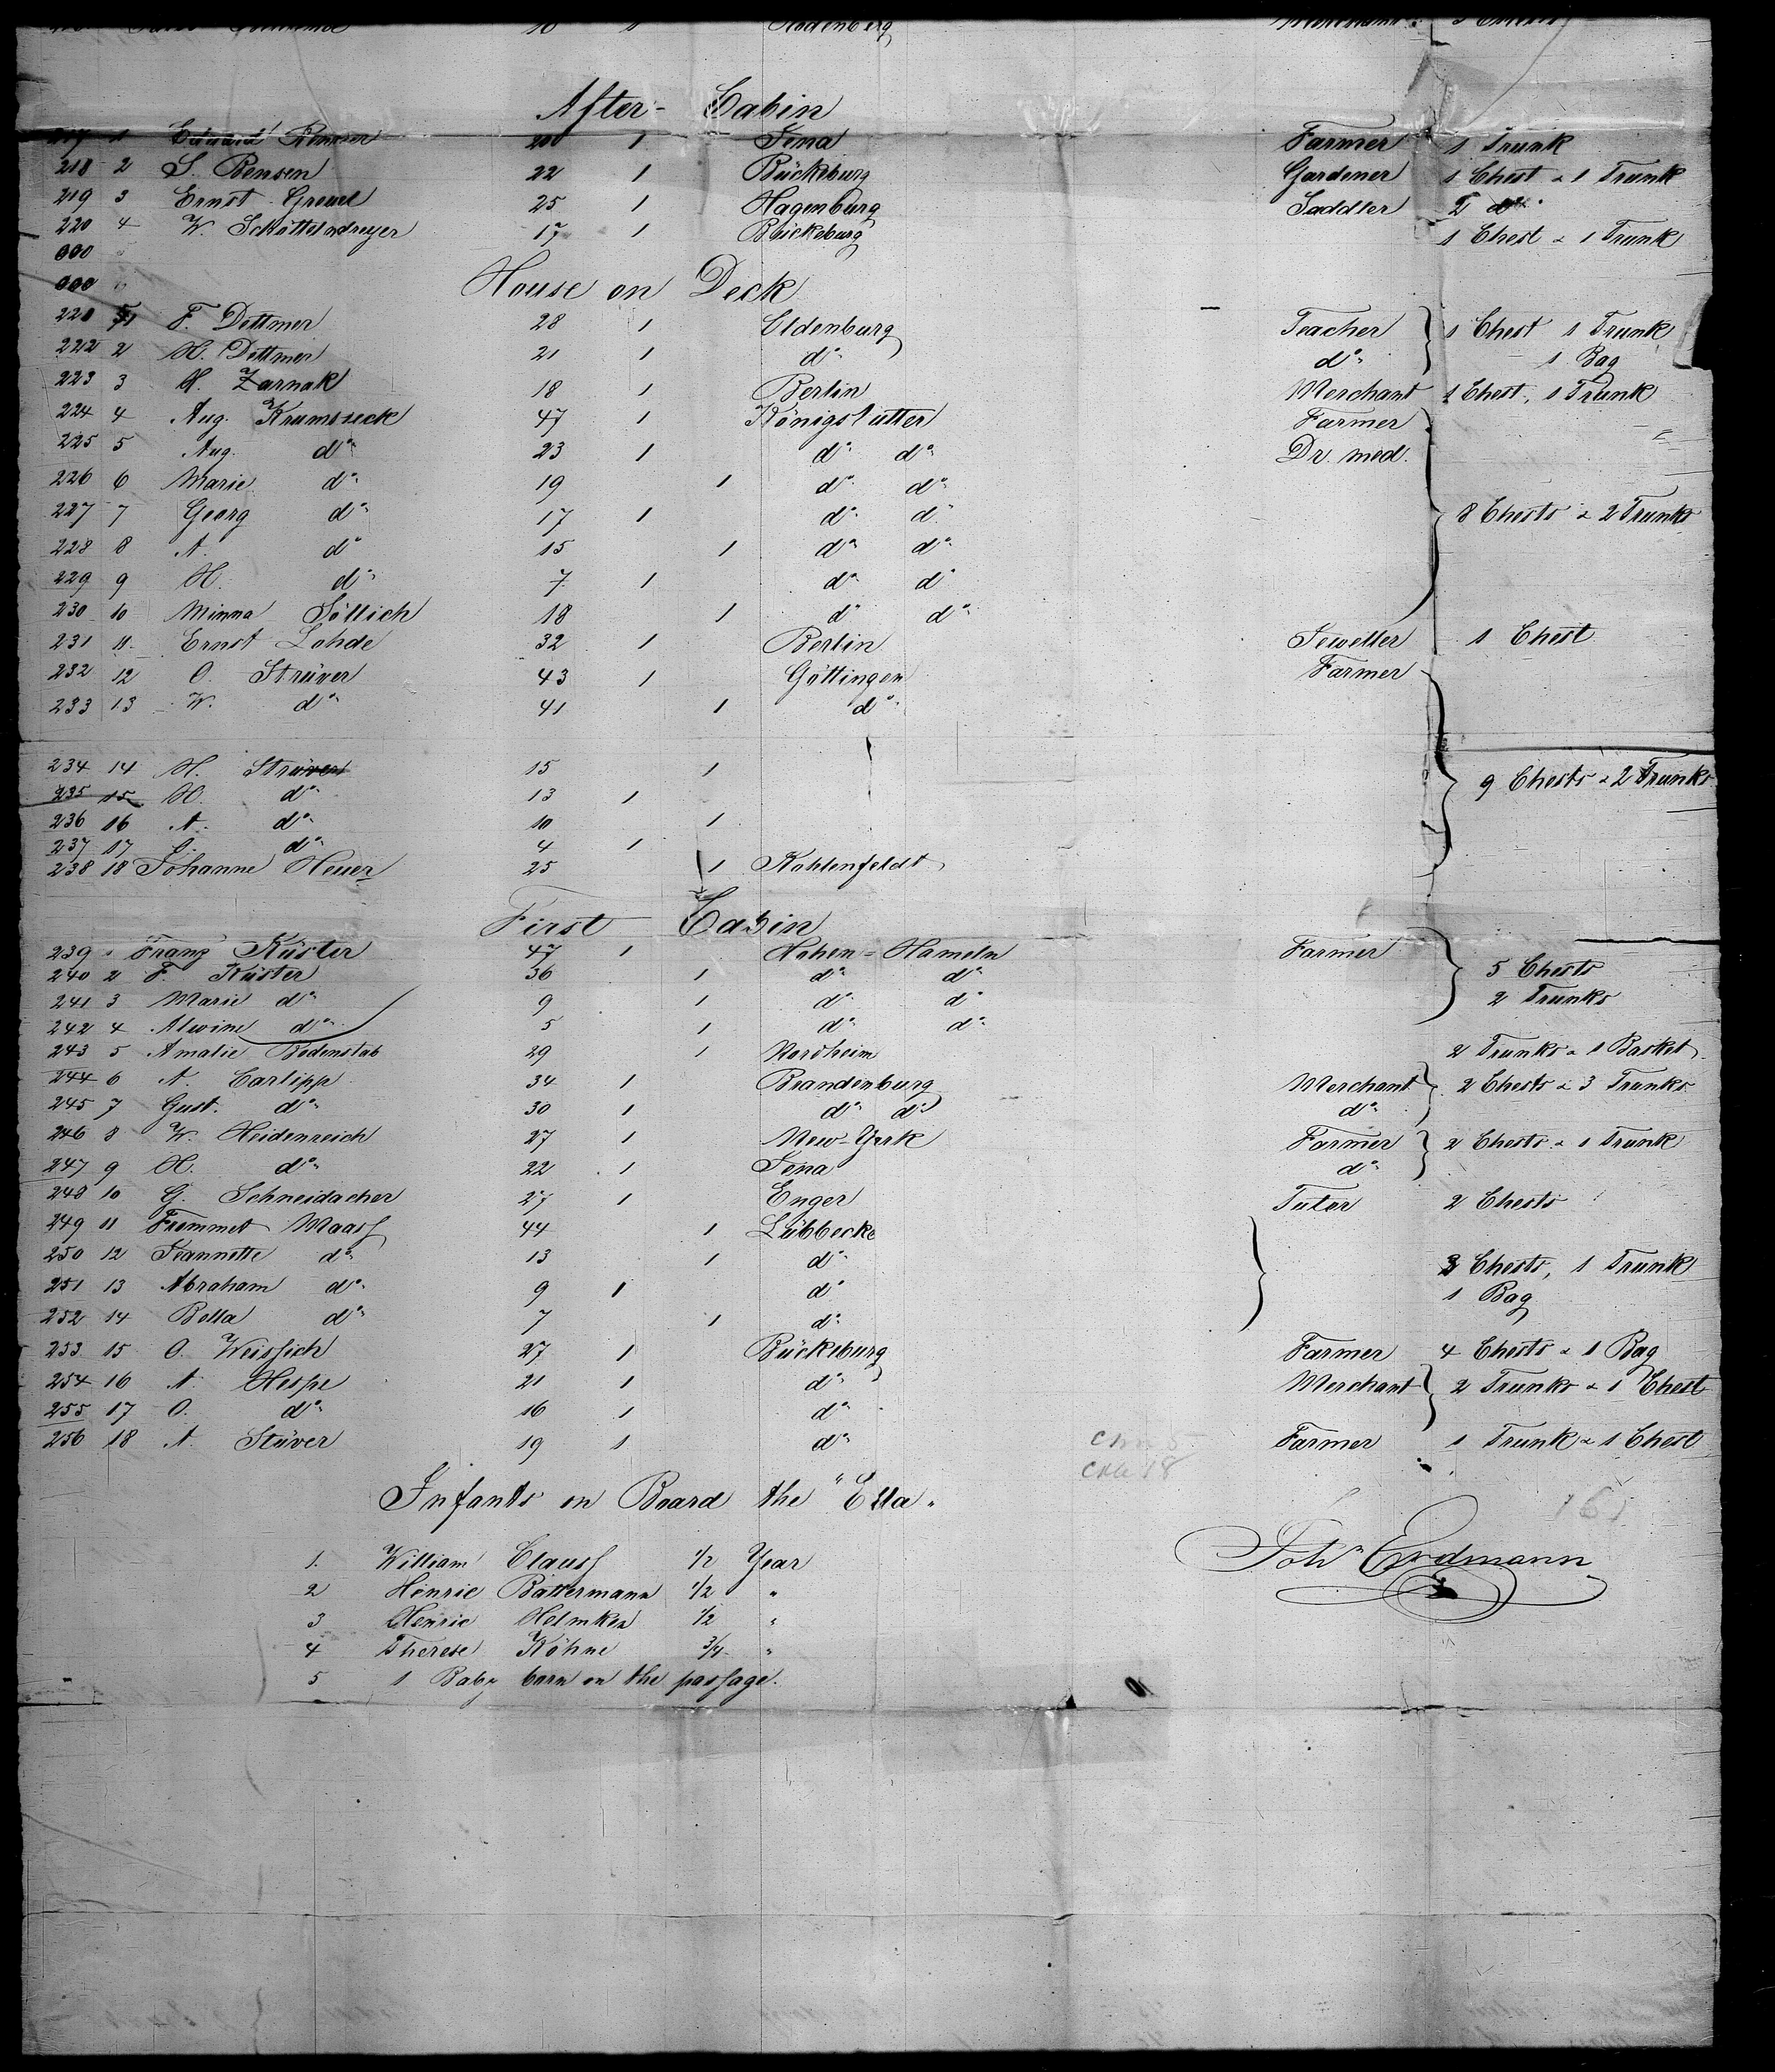 10 1 Rodenberg
After - Cabin
217 1 Eduard 20 1 Jena Farmer 1 Trunk
218 2 S. Bensen 22 1 Bückeburg Gardener 1 Chest & 1 Trunk
219 3 Ernst Greuel 25 1 Hagenburg Saddler 2 do
220 4 W. Schöttelndreyer 17 1 Bückeburg 1 Chest & 1 Trunk
000
000 House on Deck
221 1 F. Dettmer 28 1 Oldenburg Teacher 1 Chest 1 Trunk
222 2 H. Dettmer 21 1 do do 1 Bag
223 3 H. Zarnak 18 1 Berlin Merchant 1 Chest, 1 Trunk
224 4 Aug. Krumbieck 47 1 Königslutter Farmer
225 5 Aug. do 23 1 do do Dr. med.
226 6 Marie do 19 1 do do
227 7 Georg do 17 1 do do 8 Chests & 2 Trunks
228 8 A. do 15 1 do do
229 9 H. do 7 1 do do
230 10 Minna Söllich 18 1 do do
231 11 Ernst Lohde 32 1 Berlin Jeweller 1 Chest
232 12 O. Strüver 43 1 Göttingen Farmer
233 13 W. do 41 1 do
234 14 H. Strüver 15 1
9 Chests & 2 Trunks
235 15 H. do 13 1
236 16 A. do 10 1
237 17 do 4 1
238 18 Johanne Heuer 25 1 Kohlenfeldt
First Cabin
239 1 Franz Küster 47 1 Hohen = Hameln Farmer
240 2 F. Küster 36 1 do do 5 Chests
241 3 Marie do 9 1 do do 2 Trunks
242 4 Alwine do 5 1 do do
243 5 Amalie Bodenstab 29 1 Nordheim 2 Trunks & 1 Basket
244 6 A. Carlipp 34 1 Brandenburg Merchant 2 Chests & 3 Trunks
245 7 Gust. do 30 1 do do do
246 8 W. Heidenreich 27 1 New-York Farmer 2 Chests & 1 Trunk
247 9 H. do 22 1 Jena do
248 10 G. Schneidacher 27 1 Enger Tutor 2 Chests
249 11 Frommet Maass 44 1 Lübbecke
250 12 Jeannette do 13 1 do 3 Chests, 1 Trunk
251 13 Abraham do 9 1 do 1 Bag
252 14 Bella do 7 1 do
253 15 O. Weissich 27 1 Bückeburg Farmer 4 Chests & 1 Bag
254 16 A. Hespe 21 1 do Merchant 2 Trunks & 1 Chest
255 17 O. do 16 1 do
256 18 A. Stüver 19 1 do Farmer 1 Trunk & 1 Chest
Infants on Board the "Ella"
1. William Clauss 1/2 Year
Joh Erdmann
2 Henrie Battermann 1/2 "
3 Henrie Helmken 1/2 "
4 Therese Köhne 3/4 "
5 1 Baby born on the passage.